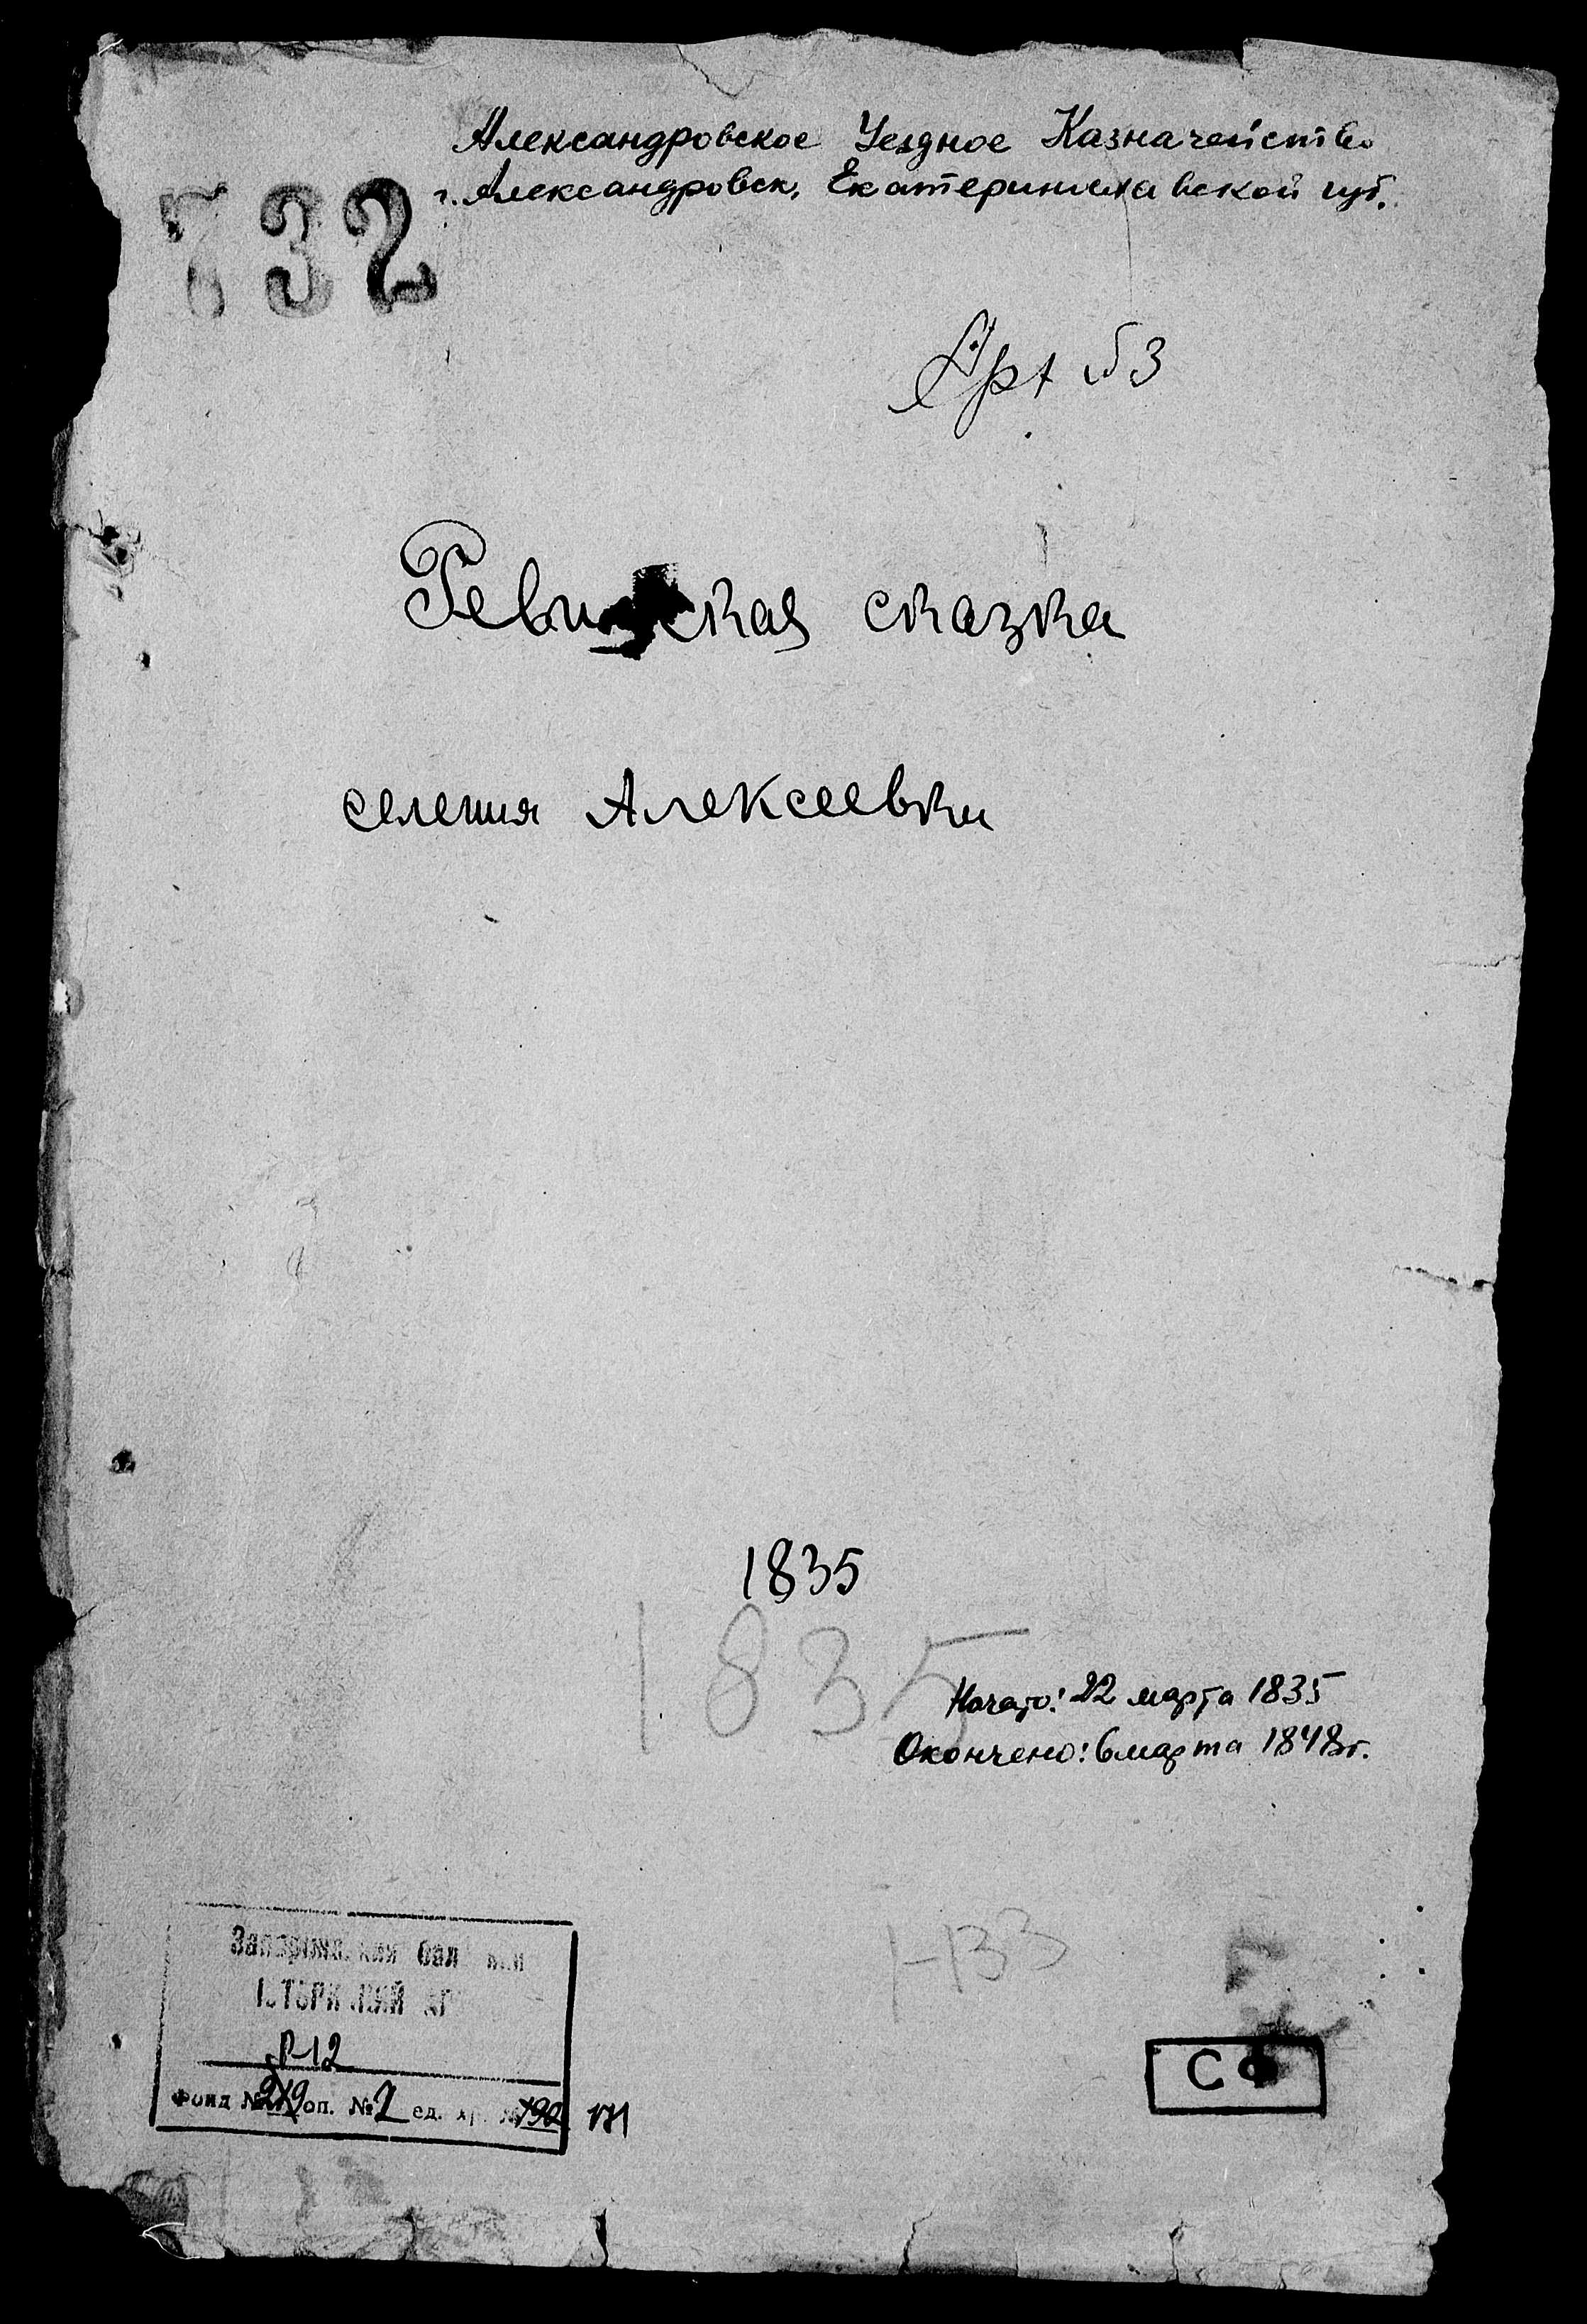 Александровское Уездное Казначейство
г. Александровск, Екатеринославской губ.
732
Ревизская сказка
селения Алексеевки
1835
1835
Начато: 22 марта 1835
Окончено: 6 марта 1848 г.
1-133
СФ
Р-12
Фонд № оп. № 2 ед. хр. 171